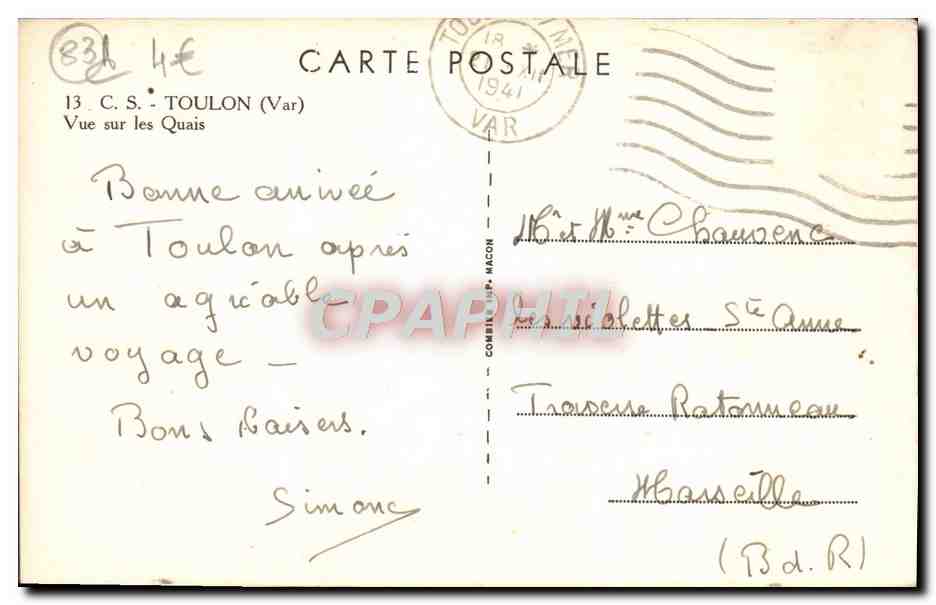 83A 4€
CARTE POSTALE
13 C. S. - TOULON (Var)
Vue sur les Quais
18
1941
VAR
Bonne arrivée
à Toulon après
un agréable
voyage _
Bons baisers.
Simone
COMBIER IMP. MACON
CPAPHIL
Mr et Mme Chauvenc
Les violettes - Ste Anne
Traverse Ratonneau
Marseille
(B d. R)